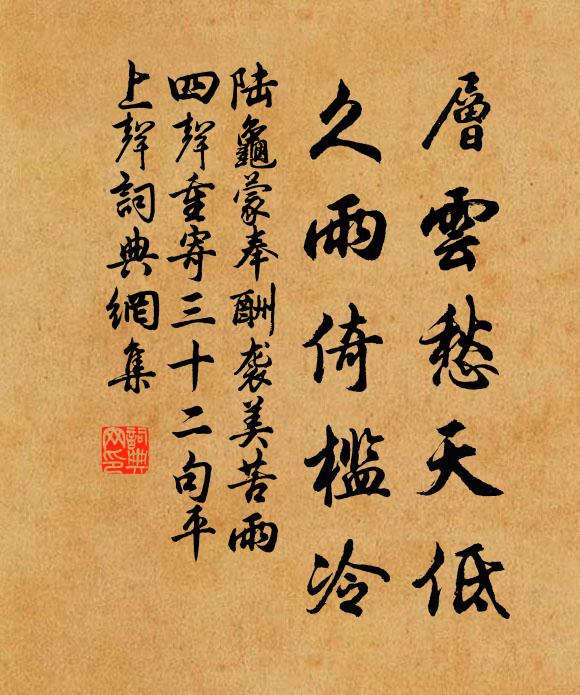 層雲愁天低
久雨倚檻冷
陆龜蒙奉酬袭美苦雨
四聲重寄三十二句平
上聲詞典網集
詞典
网印